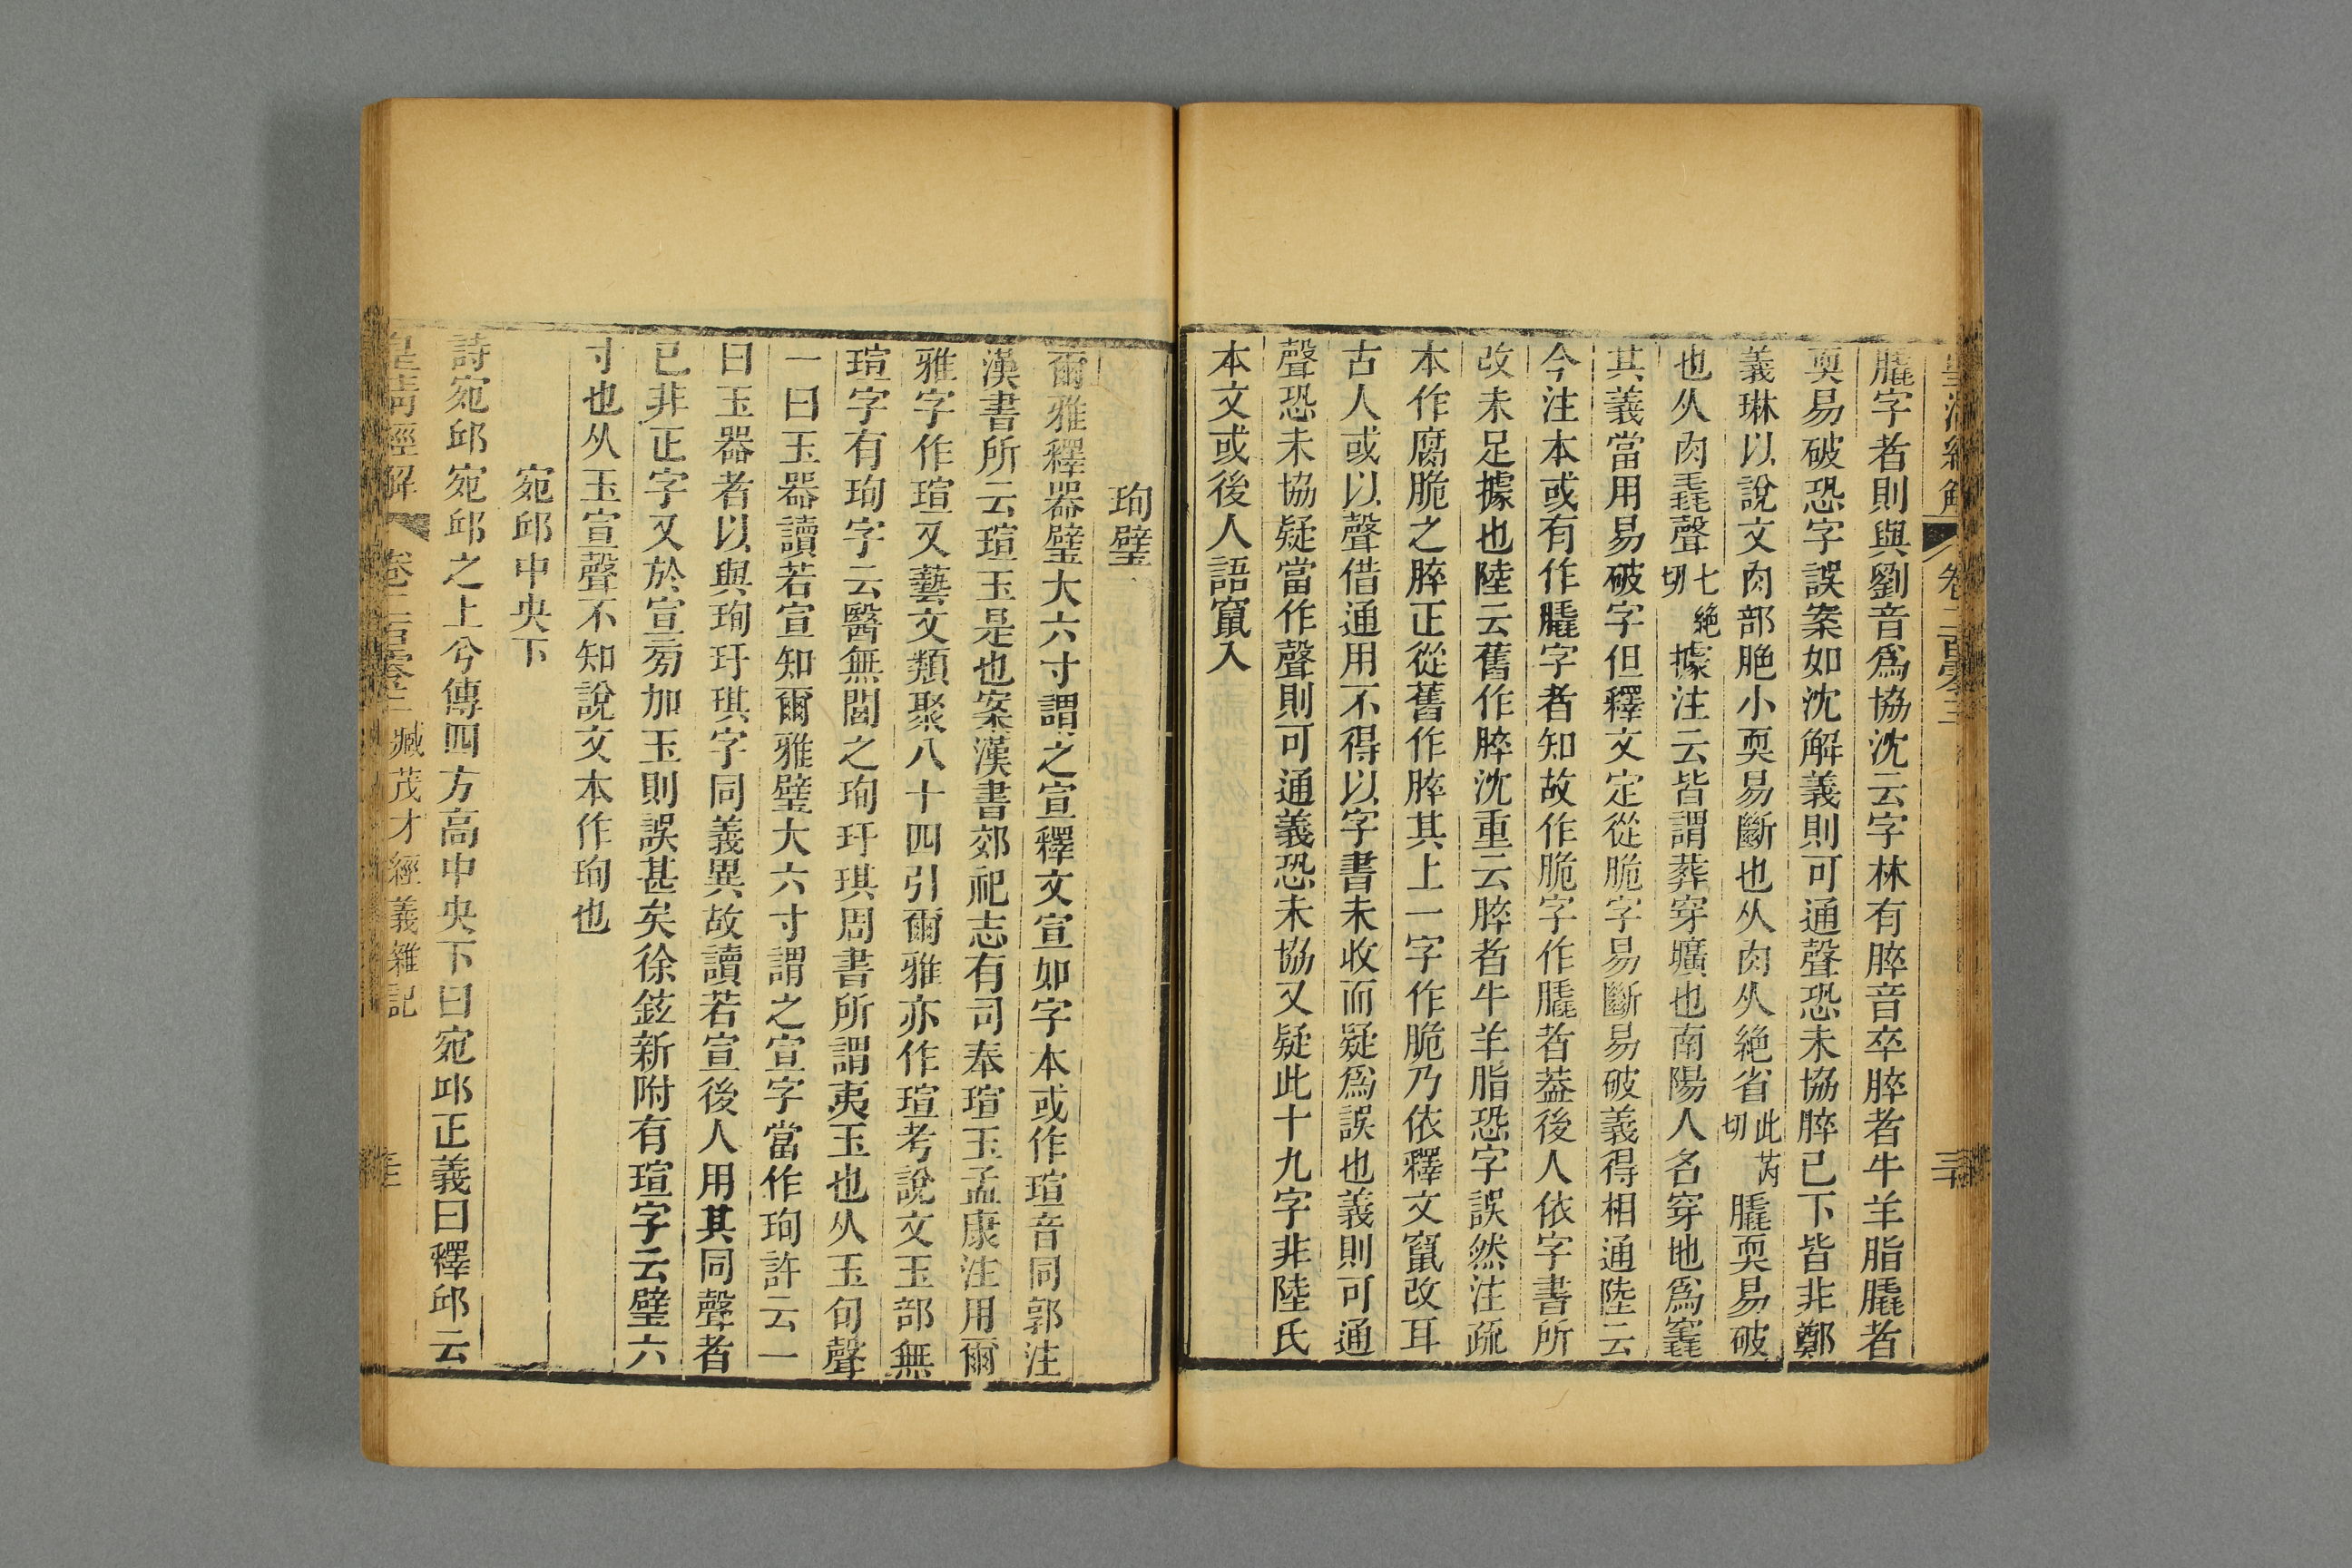 皇清經解 卷二百零三 三十
膬字者則與劉音爲協沈云字林有脺音卒脺者牛羊脂膬者
耎易破恐字誤案如沈解義則可通聲恐未協脺已下皆非鄭
義琳以說文肉部脃小耎易斷也从肉从絶省此芮切膬耎易破
也从肉毳聲七絶切據注云皆謂葬穿壙也南陽人名穿地爲竁
其義當用易破字但釋文定從脆字易斷易破義得相通陸云
今注本或有作膬字者知故作脆字作膬者葢後人依字書所
改未足據也陸云舊作脺沈重云脺者牛羊脂恐字誤然注疏
本作腐脆之脺正從舊作脺其上一字作脆乃依釋文竄改耳
古人或以聲借通用不得以字書未收而疑爲誤也義則可通
聲恐未協疑當作聲則可通義恐未協又疑此十九字非陸氏
本文或後人語竄入
珣璧
爾雅釋器璧大六寸謂之宣釋文宣如字本或作瑄音同郭注
漢書所云瑄玉是也案漢書郊祀志有司奉瑄玉孟康注用爾
雅字作瑄又藝文類聚八十四引爾雅亦作瑄考說文玉部無
瑄字有珣字云醫無閭之珣玗琪周書所謂夷玉也从玉旬聲
一曰玉器讀若宣知爾雅璧大六寸謂之宣字當作珣許云一
曰玉器者以與珣玗琪字同義異故讀若宣後人用其同聲者
已非正字又於宣旁加玉則誤甚矣徐鉉新附有瑄字云璧六
寸也从玉宣聲不知說文本作珣也
宛邱中央下
詩宛邱宛邱之上兮傳四方高中央下曰宛邱正義曰釋邱云
皇清經解 卷二百零三 臧茂才經義雜記